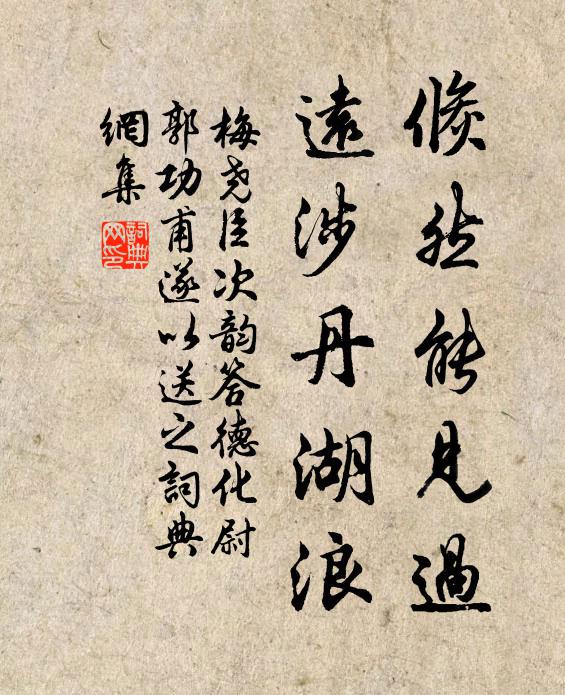 倏然能見過
遠涉丹湖浪
梅堯臣次韵答德化尉
郭功甫遂以送之詞典
網集
詞典
网印